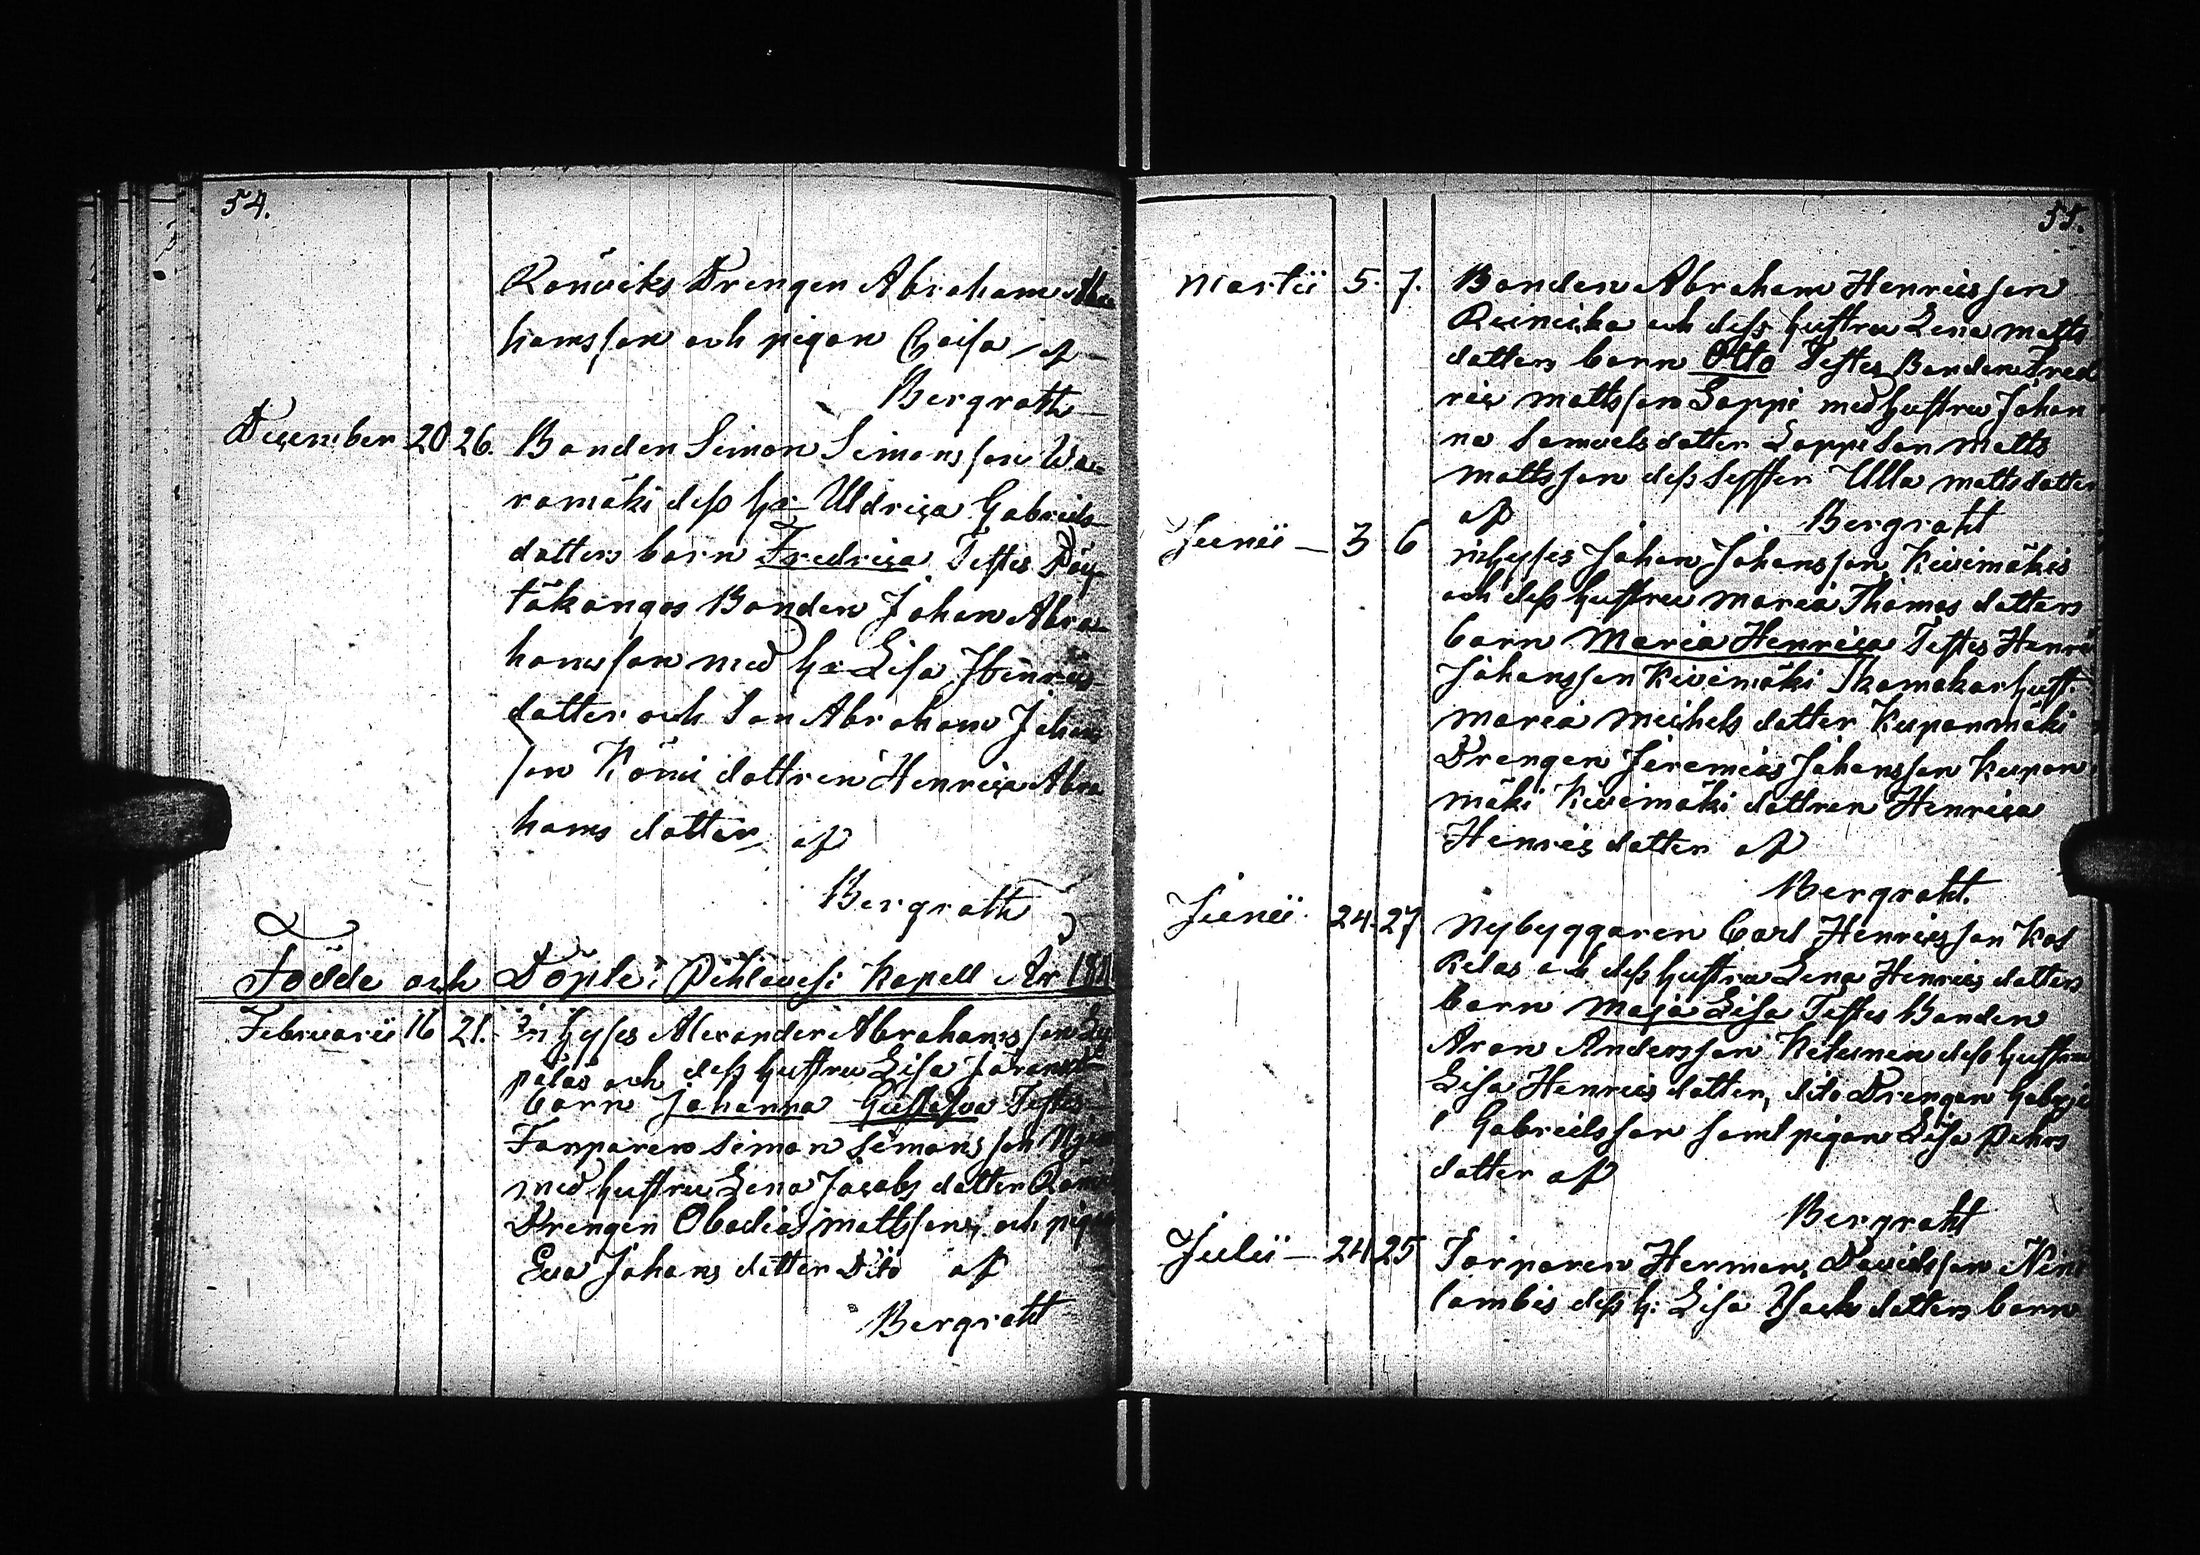 54.
Ranviks Drengen Abraham Abra
hamsson och pigan Caisa / af
Bergroth
December 20 26. Bonden Simon Simonsson Wa-
ramäki dess h:a Uldrica Gabriels
datters barn Fredrica Testes
täkangas Bonden Johan Abra-
hamsson med h:a Lisa Henrics
datter och Son Abraham Johans
son Römi dottren Henrica Abra
hams datter / af
Bergroth
Födde och Döpte i Pihlavesi Kapell År
Februarii 16 21. Inhyses Alexander Abrahamsson
päläs och dess hustru Lisa
barn Johanna Gustafva Testes
Torparen Simon Simonsson
med hustru Lena Jacobs datter
Drengen Obadias Mattsson, och pigan
Eva Johans datter Dito af
Bergroht
55.
Martii 5. 7. Bonden Abraham Henricsson
Reinicka och dess hustru Lena Matts
datters barn Otto Testes Bonden Fred
ric Mattsson Lappi med hustru Johan
na Samuels datter Lappi Son Matts
Mattsson dess Syster Ulla Matts datter
af Bergroht
Junii 3 6 inhyses Johan Johansson Kivimäkis
och dess hustru Maria Thomas datters
barn Maria Henrica Testes Henric
Johansson Kivimäki Skomakar hust.
Maria Michels datter Kuponmäki
Drengen Jeremias Johansson Kupon
mäki Kivimäki dottren Henrica
Henrics datter af
Bergroht.
Junii 24. 27 Nybyggaren Carl Henricsson Kos
Kelas och dess hustru Lena Henrics datters
barn Maja Lisa Testes Bonden
Aron Andersson Keteinen dess hustru
Lisa Henrics datter, dito Drengen Gabrie
l Gabrielsson samt pigan Lisa Pehrs
datter af
Bergroht
Julii 24 25 Torparen Herman Davidsson
lambis dess h: Lisa Isachs datters barn